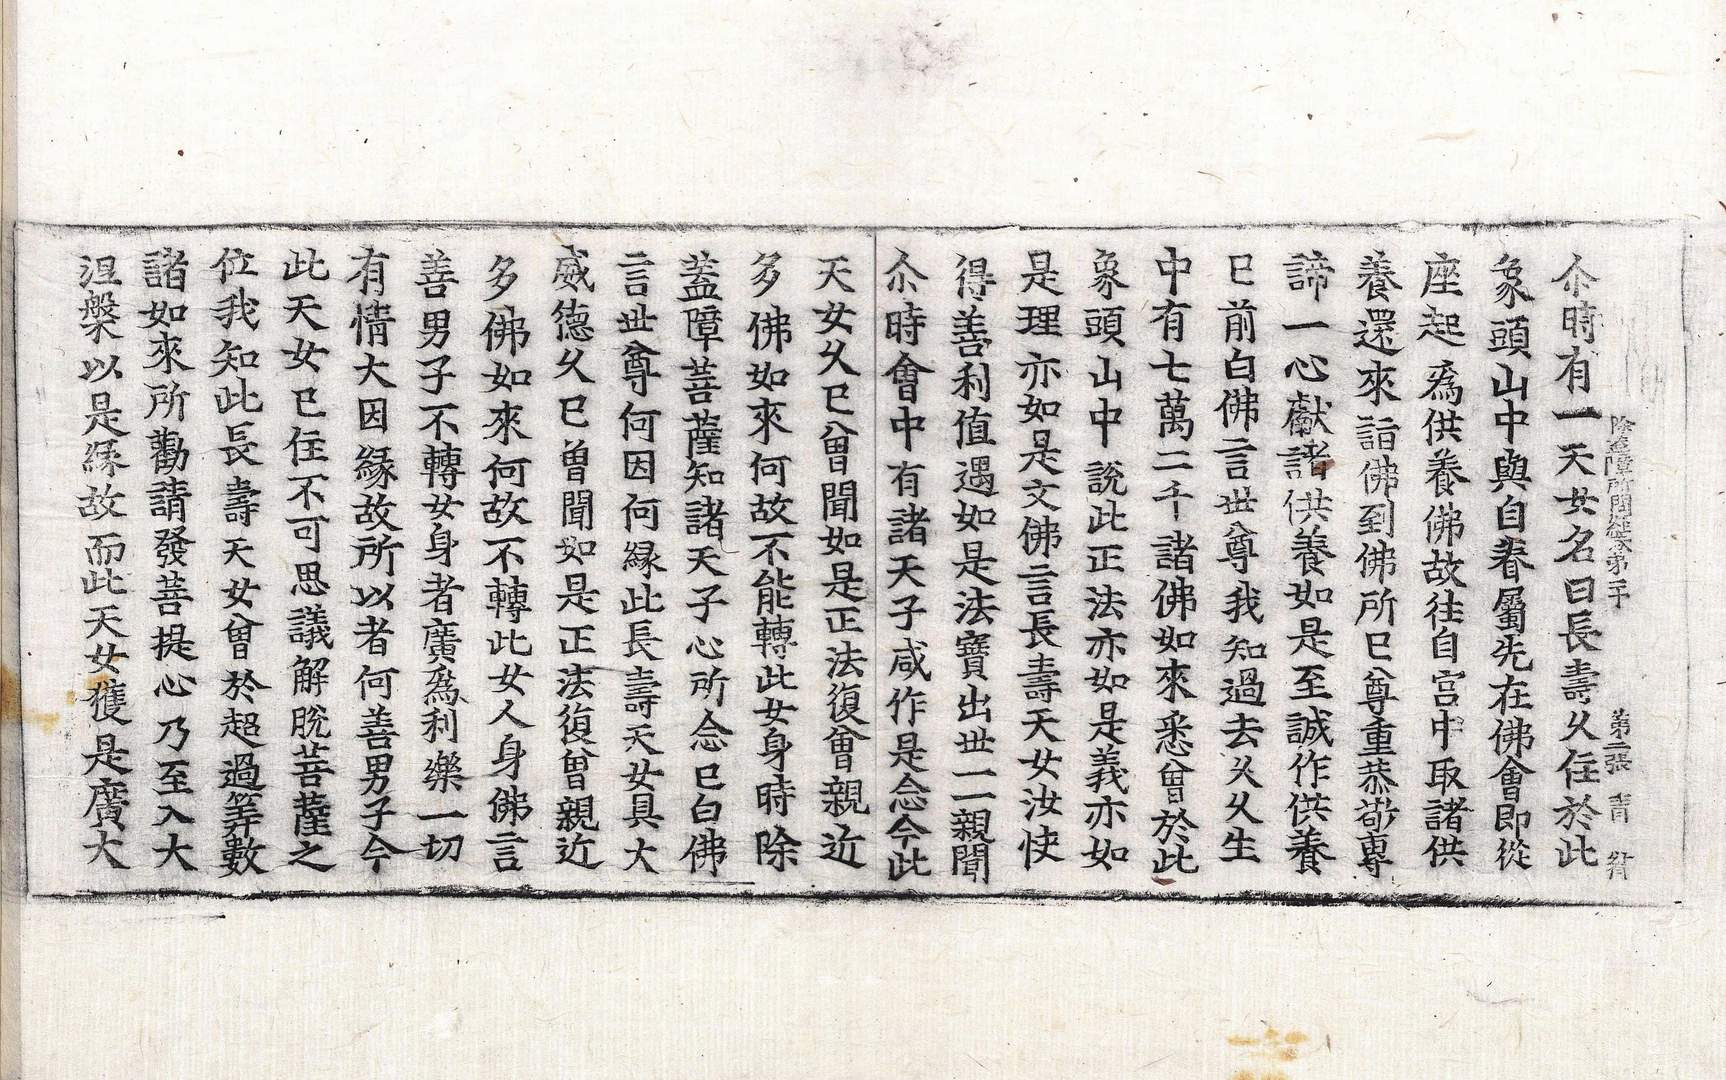 除蓋障所問經卷第二十 第二張 青
尒時有一天女名曰長壽久住於此
象頭山中與自眷屬先在佛會即從
座起爲供養佛故往自宮中取諸供
養還來詣佛到佛所已尊重恭敬專
諦一心獻諸供養如是至誠作供養
已前白佛言世尊我知過去久久生
中有七萬二千諸佛如來悉曾於此
象頭山中說此正法亦如是義亦如
是理亦如是文佛言長壽天女汝快
得善利值遇如是法寶出世一一親聞
尒時會中有諸天子咸作是念今此
天女久已曾聞如是正法復曾親近
多佛如來何故不能轉此女身時除
蓋障菩薩知諸天子心所念已白佛
言世尊何因何緣此長壽天女具大
威德久已曾聞如是正法復曾親近
多佛如來何故不轉此女人身佛言
善男子不轉女身者廣爲利樂一切
有情大因緣故所以者何善男子今
此天女已住不可思議解脫菩薩之
位我知此長壽天女曾於超過筭數
諸如來所勸請發菩提心乃至入大
涅槃以是緣故而此天女獲是廣大